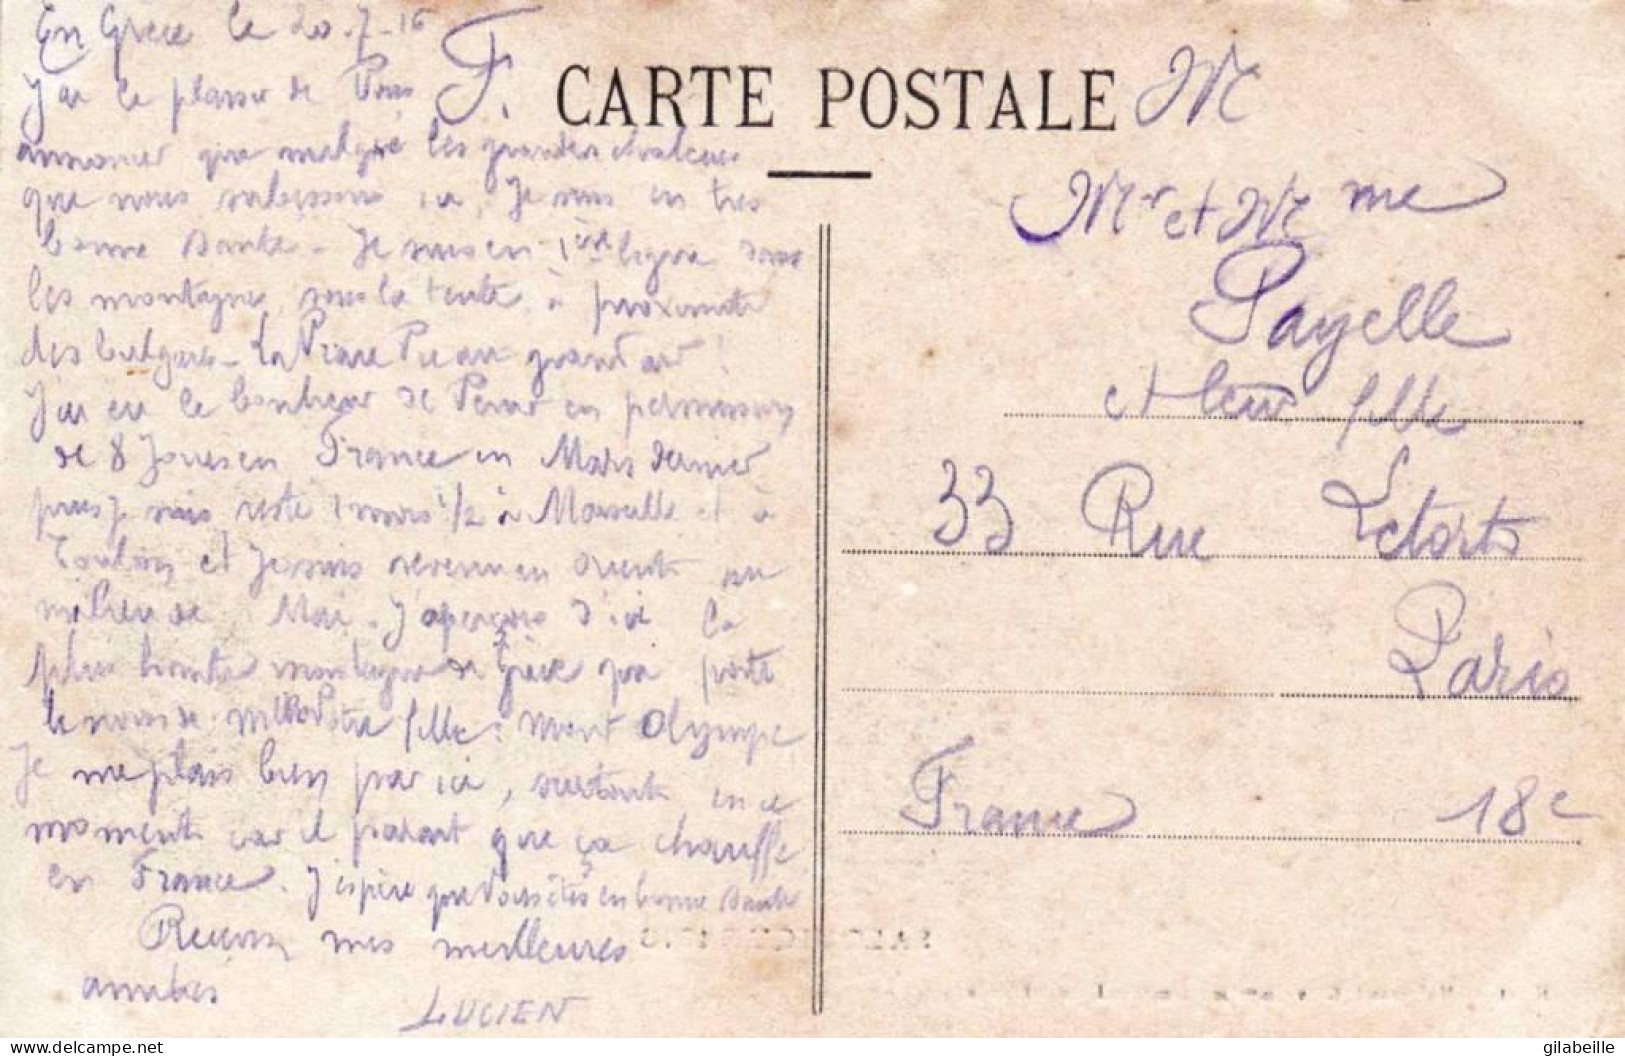 En Grèce le 20-7-16
J'ai le plaisir de Vous
annoncer que malgré les grandes chaleurs
que nous subissons ici, Je suis en très
bonne santé - Je suis en 1ère ligne dans
les montagnes, sous la tente à proximité
des bulgares - La Vraie Vie au grand air !
J'ai eu le bonheur de Venir en permission
de 8 Jours en France en Mars dernier
puis je suis resté 1 mois 1/2 à Marseille et à
Toulon et Je suis revenu en Orient au
milieu de Mai. J'aperçois d'ici la
plus haute montagne de Grèce qui porte
le nom de Mlle Votre fille : Mont Olympe
Je me plais bien par ici, surtout en ce
moment car il parait que ça chauffe
en France. J'espère que Vous êtes en bonne santé
Recevez mes meilleures
amitiés
LUCIEN
F. M
CARTE POSTALE
Mr et Mme
Payelle
et leur fille
33 Rue Letort
Paris
France 18e
© gilabeille